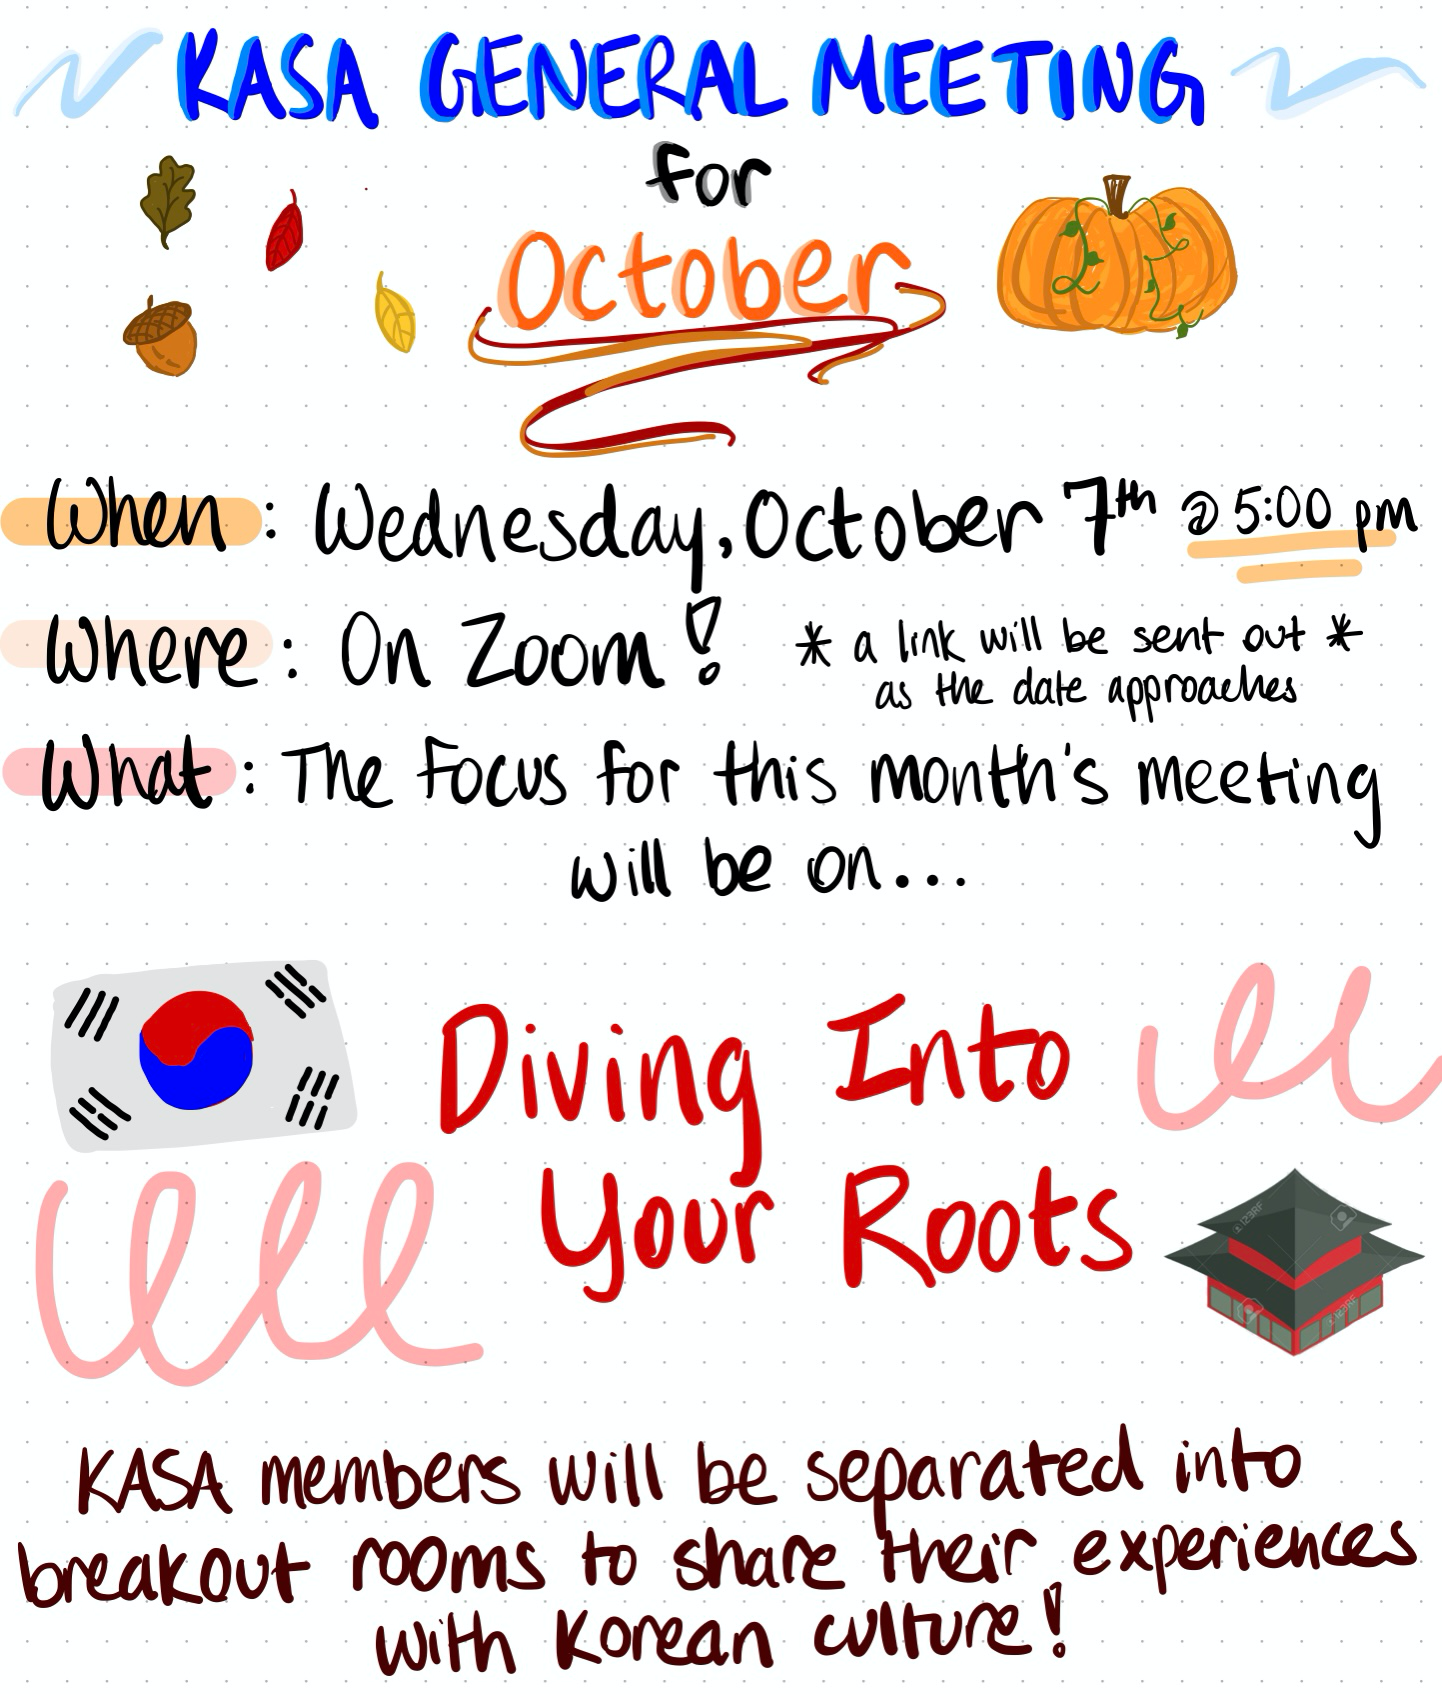 KASA GENERAL MEETING
for
October
When: Wednesday, October 7th @ 5:00 pm
Where: On Zoom! * a link will be sent out *
as the date approaches
What: The focus for this month's meeting
will be on...
Diving Into
Your Roots
123RF
123RF
KASA members will be separated into
breakout rooms to share their experiences
with Korean culture!